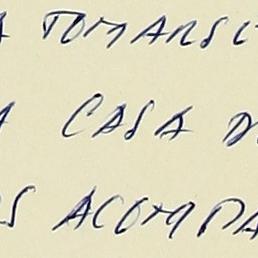 A TOMARSE
A CASA D
OS ACOMPA